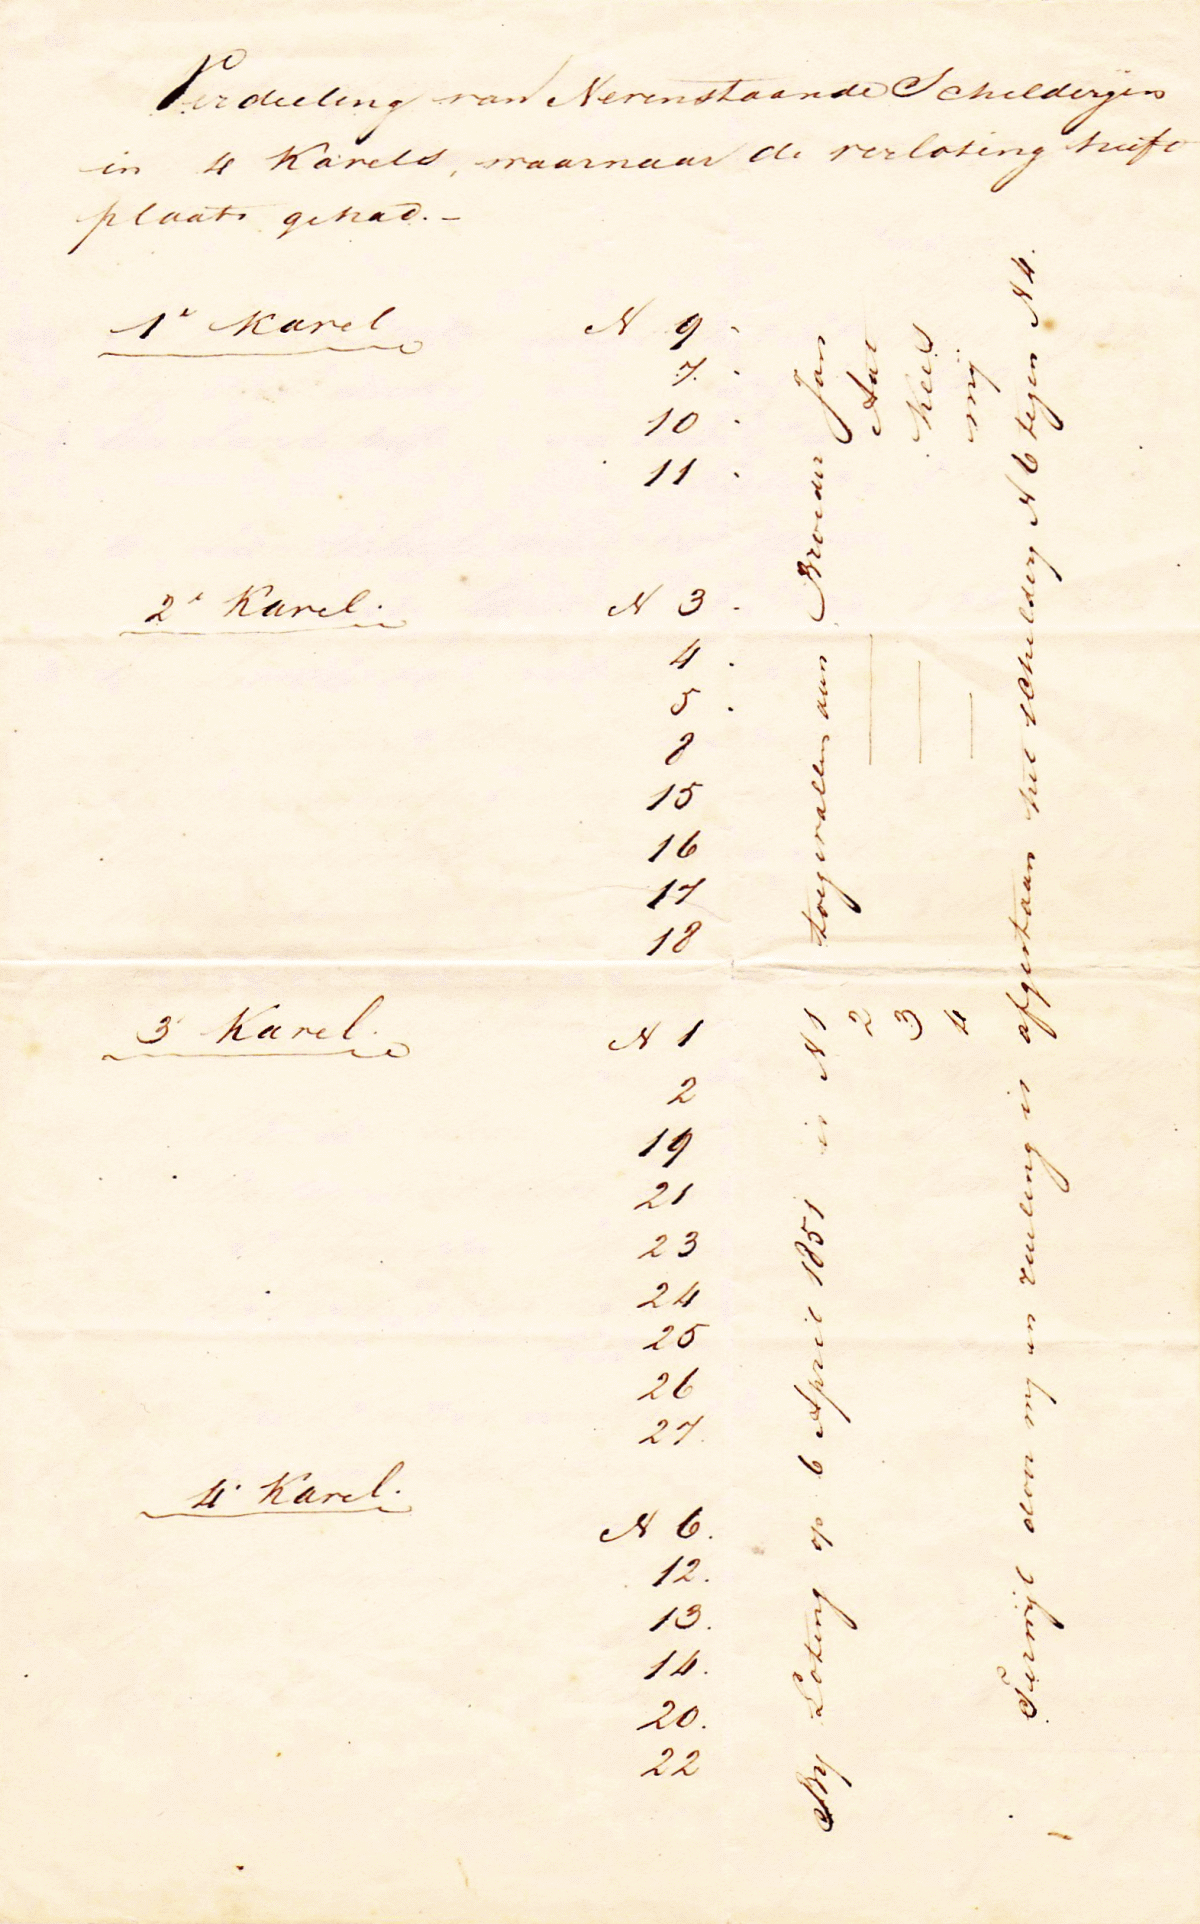 Verdeeling van Nevenstaande Schilderijen
in 4 Kavels, waarnaar de verloting heeft
plaats gehad. -
1e Kavel N 9
7.
10
11
2e Kavel. N 3
4
5
8
15
16
17
18
3e Kavel. N 1
2
19
21
23
24
25
26
27.
4e Kavel. N 6.
12.
13.
14.
20.
22
By Loting op 6 April 1851 is N 1 toegevallen aan Broeder Jan
2 — Aat
3 — Kees
4 — mij
Terwijl door mij in ruiling is afgestaan het schildery N 6 tegen N 4.